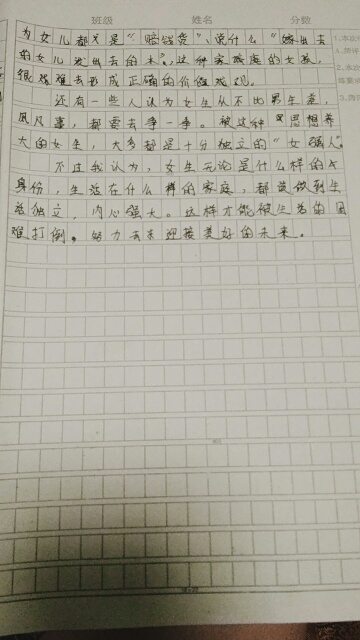 班级 姓名 分数
为女儿都是“赔钱货”、说什么“嫁出去
的女儿泼出去的水”。这种家庭的女孩，
很难难去形成正确的价值观。
还有一些人认为女生从不比男生差，
凡事，都要去争一争。被这种思想养
大的女生，大多都是十分独立的“女强人”。
不过我认为，女生无论是什么样的
身份，生活在什么样的家庭，都该做到生
活独立，内心强大。这样才能被生活的困
难打倒。努力去来迎接美好的未来。
1.本次
2.本次